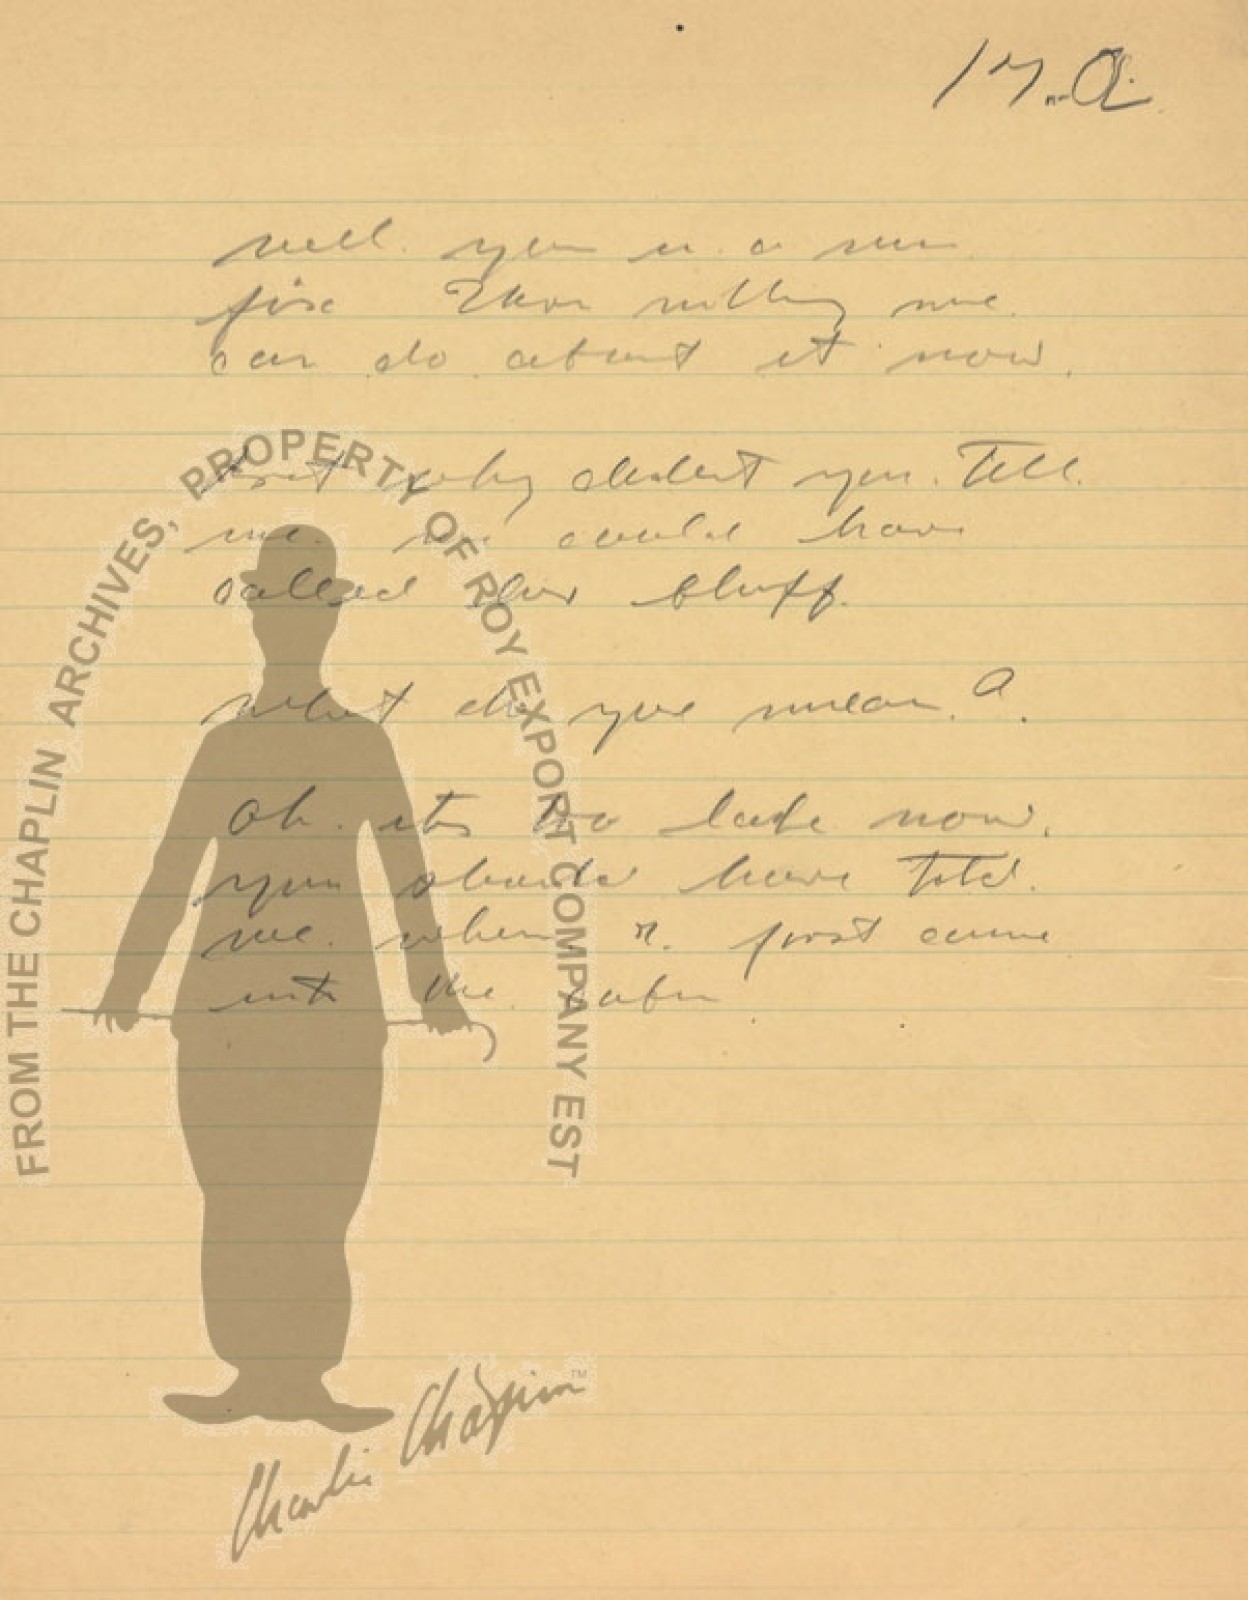 17.a
well. you
fix Ther nothing we
can do about it now.
But why didn't you. Tell.
me. we could have
called her bluff.
what do you mean. ?.
oh. its too late now.
you should have told.
me. when first came
into the cabin
FROM THE CHAPLIN ARCHIVES, PROPERTY OF ROY EXPORT COMPANY EST
Charlie Chaplin TM